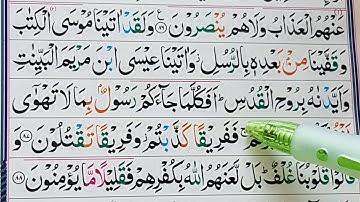 عَنْهُمُ الْعَذَابُ وَلَا هُمْ يُنْصَرُوْنَ ۝ وَلَقَدْ اٰتَيْنَا مُوْسَى الْكِتٰبَ
وَقَفَّيْنَا مِنْۢ بَعْدِهٖ بِالرُّسُلِ وَاٰتَيْنَا عِيْسَى ابْنَ مَرْيَمَ الْبَيِّنٰتِ
وَاَيَّدْنٰهُ بِرُوْحِ الْقُدُسِ ؕ اَفَكُلَّمَا جَآءَكُمْ رَسُوْلٌۢ بِمَا لَا تَهْوٰٓى
فَفَرِيْقًا كَذَّبْتُمْ وَفَرِيْقًا تَقْتُلُوْنَ ۝۸۷
قَالُوْا قُلُوْبُنَا غُلْفٌ ؕ بَلْ لَّعَنَهُمُ اللّٰهُ بِكُفْرِهِمْ فَقَلِيْلًا مَّا يُؤْمِنُوْنَ ۝۸۸